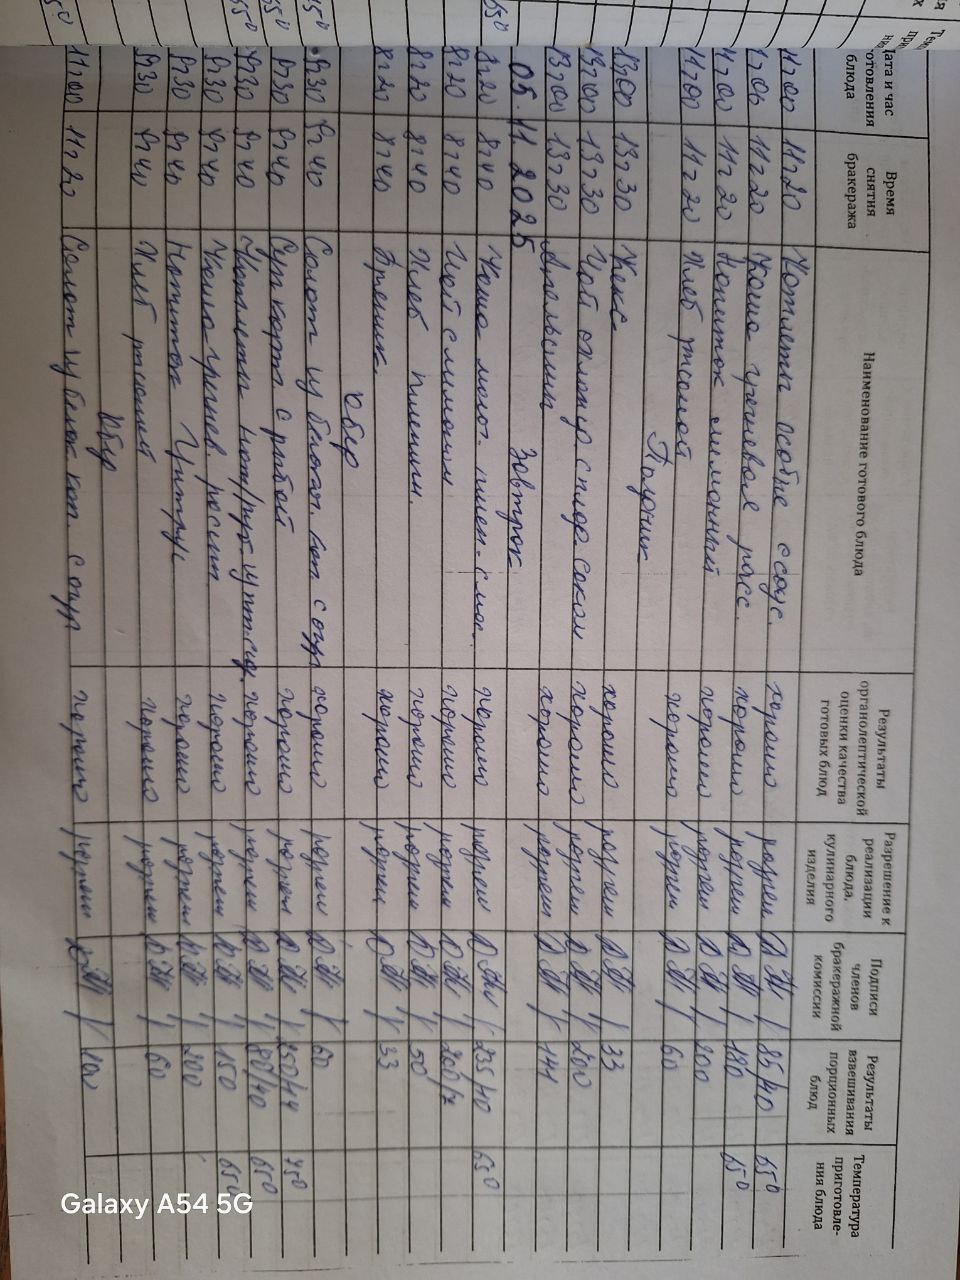 Дата и час
готовления
блюда
Время
снятия
бракеража
Наименование готового блюда
Результаты
органолептической
оценки качества
готовых блюд
Разрешение к
реализации
блюда,
кулинарного
изделия
Подписи
членов
бракеражной
комиссии
Результаты
взвешивания
порционных
блюд
Температура
приготовле-
ния блюда
11 00 11ч 20 Котлеты особые с соус. хорошо разреш 85/40 65°
11ч 00 11ч 20 Каша гречневая расс. хорошо разреш 180 65°
11ч 00 11ч 20 Напиток лимонный хорошо разреш 200
11ч 00 11ч 20 Хлеб ржаной хорошо разреш 60
Полдник
13ч 00 13ч 30 Кекс хорошо разреш 33
13ч 00 13ч 30 Чай с сахаром хорошо разреш 200
13ч 00 13ч 30 Апельсин хорошо разреш 141
05.11.2025 Завтрак
8ч 20 8ч 40 Каша молоч. пшен. с мас. хорошо разреш 235/10 65°
8ч 20 8ч 40 Чай с лимоном хорошо разреш 200/7
8ч 20 8ч 40 Хлеб пшенич. хорошо разреш 50
8ч 20 8ч 40 Пряник хорошо разреш 33
Обед
9ч 30 9ч 40 Салат из белокач. кап с огур хорошо разреш 60
9ч 30 9ч 40 Суп карт с рыбой хорошо разреш 250/14 75°
9ч 30 9ч 40 хорошо разреш 80/40 65°
9ч 30 9ч 40 Каша гречнев. рассып хорошо разреш 150 65°
9ч 30 9ч 40 Напиток Цитрус хорошо разреш 200
9ч 30 9ч 40 Хлеб ржаной хорошо разреш 60
Обед
11ч 00 11ч 20 Салат из белок кап. с огур хорошо разреш 100
Galaxy A54 5G